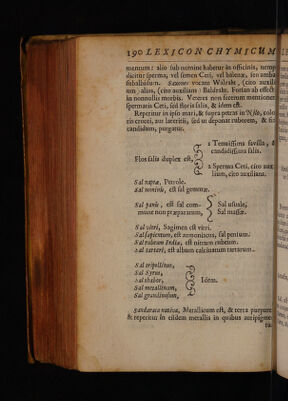 190 LEXICON CHYMICUM
mentum: alio sub nomine habetur in officinis, nemp
dicitur sperma, vel semen Ceti, vel balenæ, seu amba
Saxones vocant Walraht, (cito auxili
um) alias, (cito auxilium) Baldraht. Forsan ab effectu
in nonnullis morbis. Veteres non fecerunt mentionem
spermatis Ceti, sed floris salis, & idem est.
Reperitur in ipso mari, & supra petras in Nilo, colo
ris crocei, aut lateritii, sed ut deponat ruborem, & fi
candidum, purgatur.
1 Tenuissima favilla, &
candidissima salis.
Flos salis duplex est,
2 Sperma Ceti, cito aux
lium, cito auxilians.
Sal naptæ, Petrole.
est sal gemmæ.
Sal panis, est sal com-
mune non præparatum,
Sal usuale,
Sal massæ.
Sal vitri, Sagimen est vitri.
Sal sapientum, est armoniacus, sal pentum.
Sal rubeum Indiæ, est nitrum rubeum.
Sal tartari, est album calcinatum tartarum.
Sal tripollinus,
Sal Syrus,
Sal thabor,
Idem.
Sal metallinum,
Sal grandinosum,
Sandaraca nativa, Metallicum est, & terra purpure
& reperitur in eisdem metallis in quibus auripigme